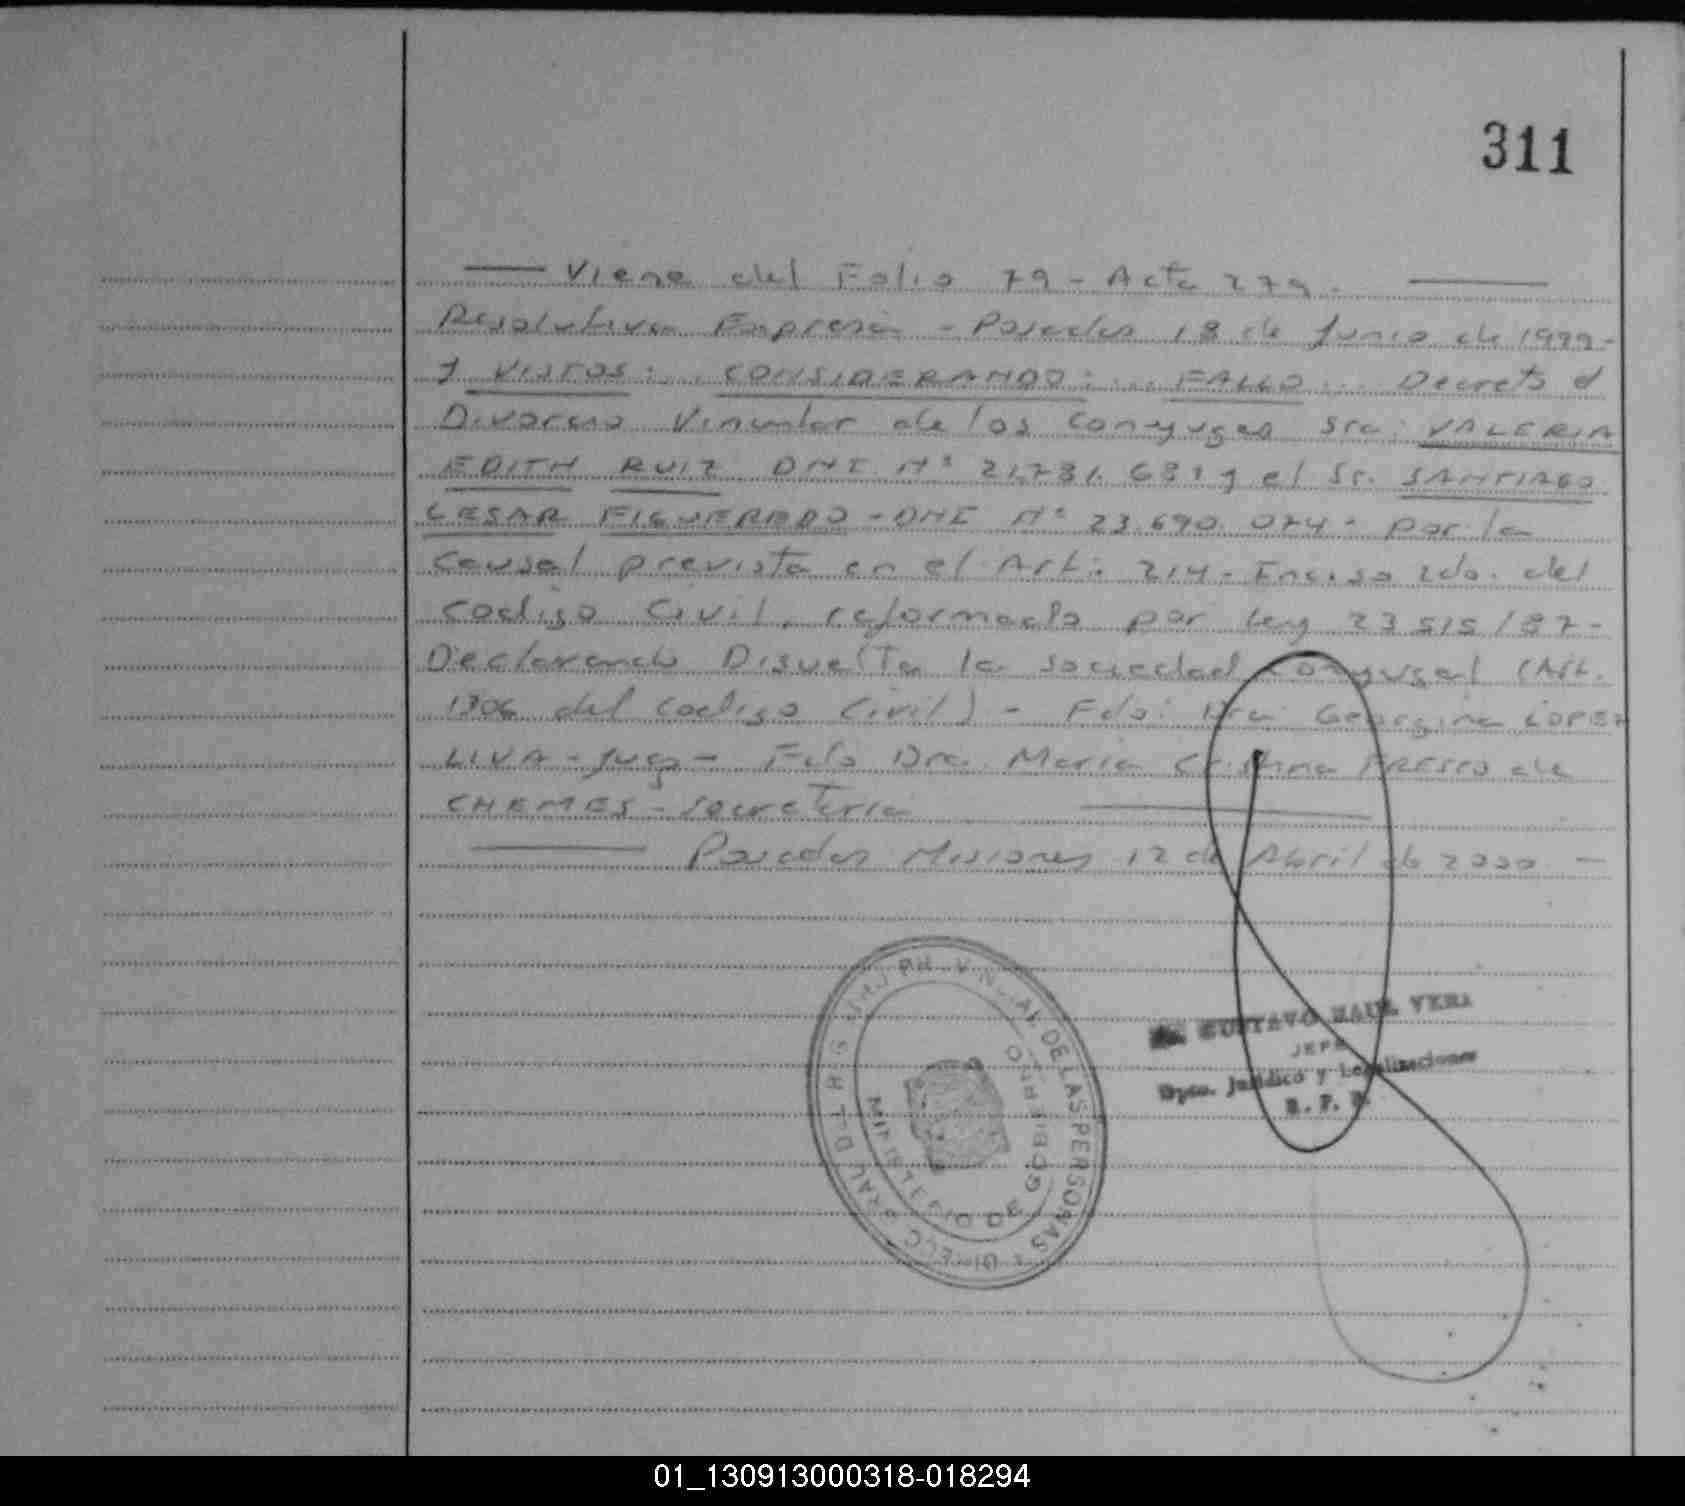 311
Viene del Folio 79 - Acta 279.
Resolutiva Expresa - Posadas 18 de Junio de 1999-
Y VISTOS: ... CONSIDERANDO: ... FALLO ... Decreto el
Divorcio Vincular de los conyuges Sra: VALERIA
EDITH RUIZ DNI Nº 21.781.683 y el Sr. SANTIAGO
CESAR FIGUEREDO - DNI Nº 23.690.074 - por la
causal prevista en el Art. 214 - Inciso 2do. del
Codigo Civil, reformado por Ley 23515/87-
Declarando Disuelta la sociedad conyugal (Art.
1306 del Codigo Civil) - Fdo: Dra Georgina LOPEZ
LIVA - Juez - Fdo Dra. Maria Cristina FRESCO de
CHEMES - Secretaria
Posadas Misiones 12 de Abril de 2000 -
GUSTAVO RAUL VERA
JEFE
Dpto. Jurídico y Legalizaciones
R. P. P.
DE LAS PERSONAS
MINISTERIO DE GOBIERNO
01_130913000318-018294